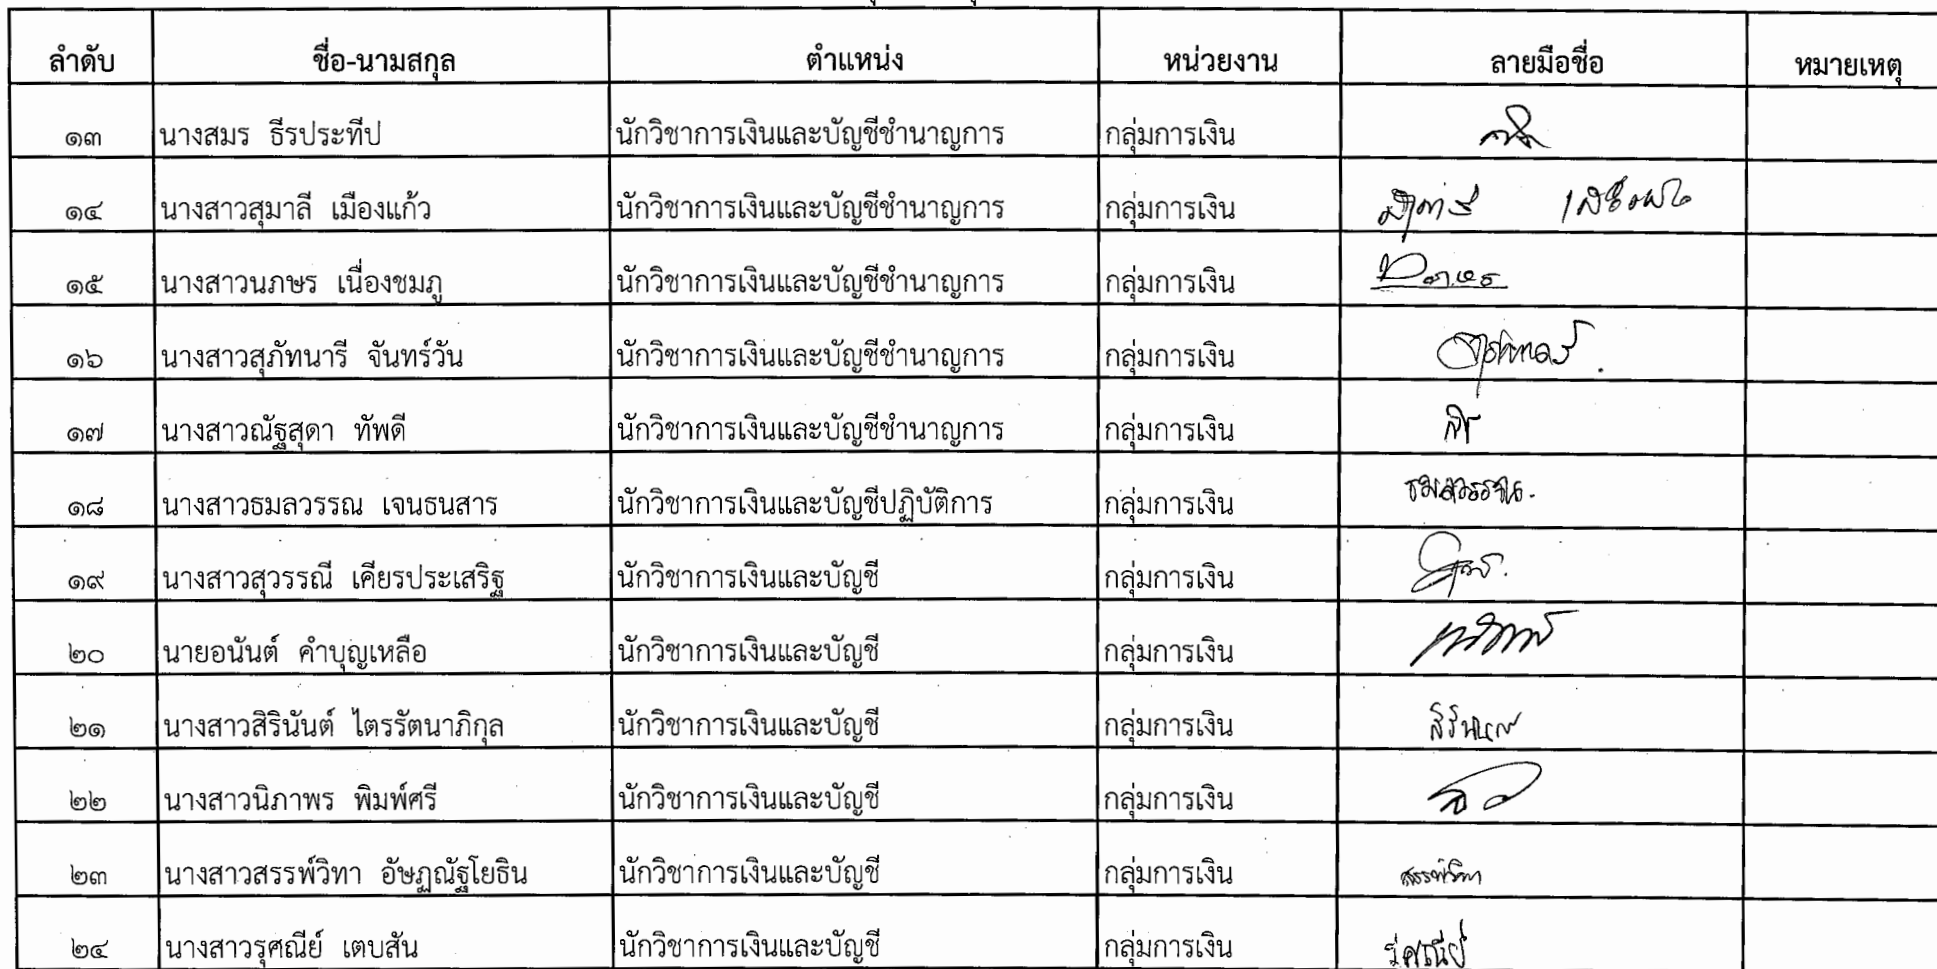 ลำดับ ชื่อ-นามสกุล ตำแหน่ง หน่วยงาน ลายมือชื่อ หมายเหตุ
๑๓ นางสมร ธีรประทีป นักวิชาการเงินและบัญชีชำนาญการ กลุ่มการเงิน
๑๔ นางสาวสุมาลี เมืองแก้ว นักวิชาการเงินและบัญชีชำนาญการ กลุ่มการเงิน
๑๕ นางสาวนภษร เนื่องชมภู นักวิชาการเงินและบัญชีชำนาญการ กลุ่มการเงิน นภษร
๑๖ นางสาวสุภัทนารี จันทร์วัน นักวิชาการเงินและบัญชีชำนาญการ กลุ่มการเงิน
๑๗ นางสาวณัฐสุดา ทัพดี นักวิชาการเงินและบัญชีชำนาญการ กลุ่มการเงิน
๑๘ นางสาวธมลวรรณ เจนธนสาร นักวิชาการเงินและบัญชีปฏิบัติการ กลุ่มการเงิน ธมลวรรณ.
๑๙ นางสาวสุวรรณี เคียรประเสริฐ นักวิชาการเงินและบัญชี กลุ่มการเงิน
๒๐ นายอนันต์ คำบุญเหลือ นักวิชาการเงินและบัญชี กลุ่มการเงิน
๒๑ นางสาวสิรินันต์ ไตรรัตนาภิกุล นักวิชาการเงินและบัญชี กลุ่มการเงิน
๒๒ นางสาวนิภาพร พิมพ์ศรี นักวิชาการเงินและบัญชี กลุ่มการเงิน
๒๓ นางสาวสรรพ์วิทา อัษฎณัฐโยธิน นักวิชาการเงินและบัญชี กลุ่มการเงิน สรรพ์วิทา
๒๔ นางสาวรุศณีย์ เตบสัน นักวิชาการเงินและบัญชี กลุ่มการเงิน รุศณีย์